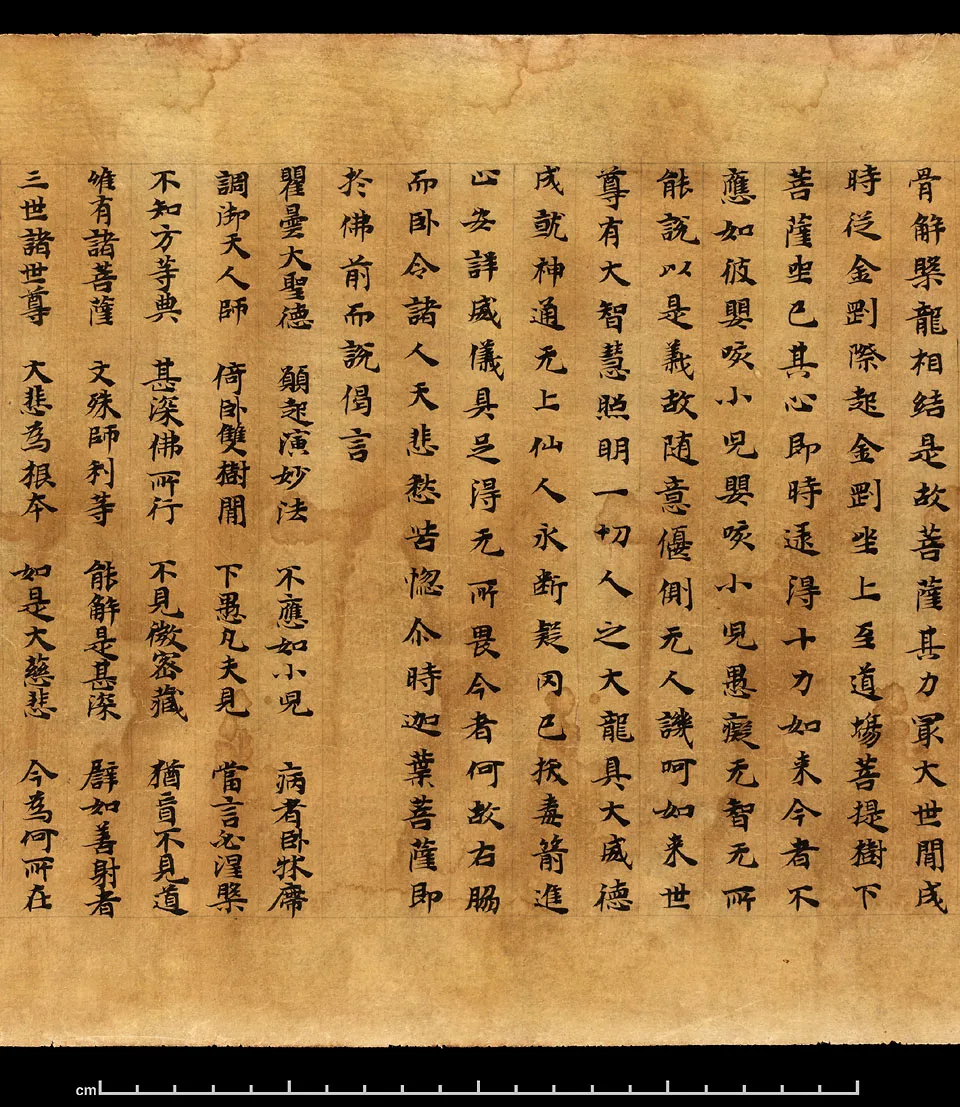 骨解槃龍相結是故菩薩其力冣大世間成
時從金剛際起金剛坐上至道場菩提樹下
菩薩坐已其心即時逮得十力如来今者不
應如彼嬰咳小兒嬰咳小兒愚癡无智无所
能説以是義故随意偃側无人譏呵如来世
尊有大智慧照明一切人之大龍具大威德
成就神通无上仙人永断疑网已拔毒箭進
止安詳威儀具足得无所畏今者何故右脇
而卧令諸人天悲愁苦惱尒時迦葉菩薩即
於佛前而説偈言
瞿曇大聖德 願起演妙法 不應如小兒 病者卧牀席
調御天人師 倚卧雙樹間 下愚凡夫見 當言必涅槃
不知方等典 甚深佛所行 不見微密藏 猶盲不見道
唯有諸菩薩 文殊師利等 能解是甚深 譬如善射者
三世諸世尊 大悲為根本 如是大慈悲 今為何所在
cm